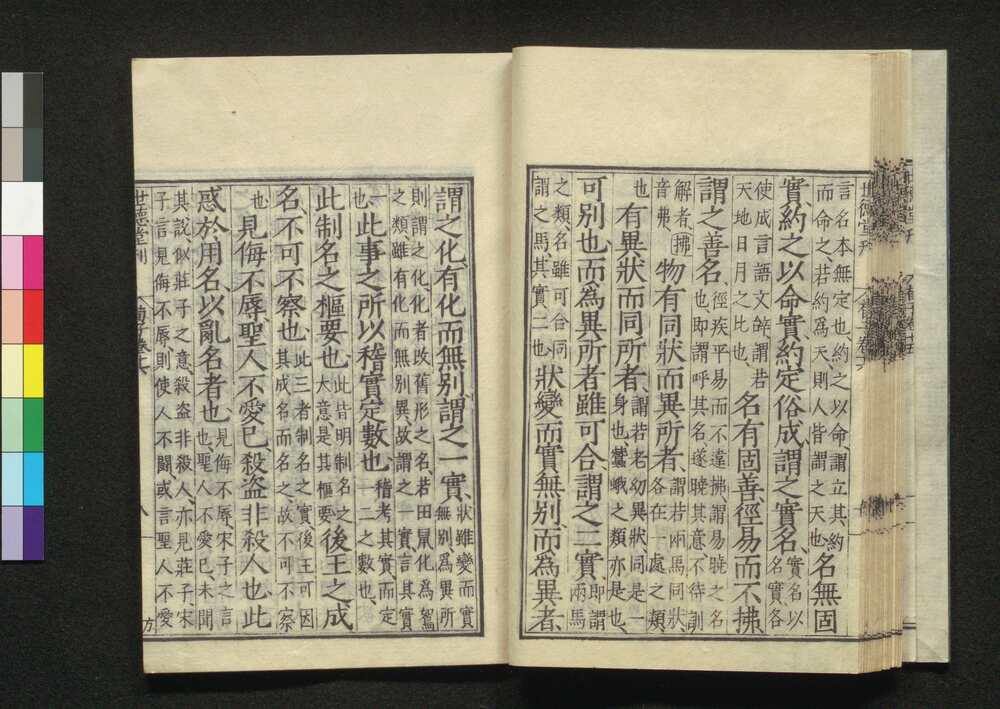 言名本無定也、約之以命謂立其約
而命之、若約爲天、則人皆謂之天也
名無固
實、約之以命實、約定俗成、謂之實名、
實名以
名實各
使成言語文辭謂若
天地日月之比也、
名有固善、徑易而不拂、
謂之善名、
徑疾平易而不違拂、謂易曉之名
也、即謂呼其名遂曉其意、不待訓
解者、拂
音弗、
物有同狀而異所者、
謂若兩馬同狀、
各在一處之類
也
有異狀而同所者、
謂若老幼異狀同是一
身也、蠶蛾之類亦是也、
可別也、而爲異所者、雖可合、謂之二實、
即謂
兩馬
之類、名雖可合同
謂之馬、其實二也、
狀變而實無別、而爲異者、
謂之化、有化而無別、謂之一實、
狀雖變而實
無別爲異所
則謂之化、化者改舊形之名、若田鼠化爲鴽
之類、雖有化而無別異、故謂之一實、言其實
也
此事之所以稽實定數也、
稽考其實而定
一二之數也、
此制名之樞要也、
此皆明制名之
大意是其樞要
後王之成
名、不可不察也、
此三者制名之實、後王可因
其成名而名之、故不可不察
也
見侮不辱、聖人不愛已、殺盜非殺人也、此
惑於用名、以亂名者也、
見侮不辱、宋子之言
也、聖人不愛已、未聞
其說、似莊子之意、殺盜非殺人、亦見莊子、宋
子言見侮不辱則使人不鬬、或言聖人不愛
世德堂刊
荀子卷十六
八
方